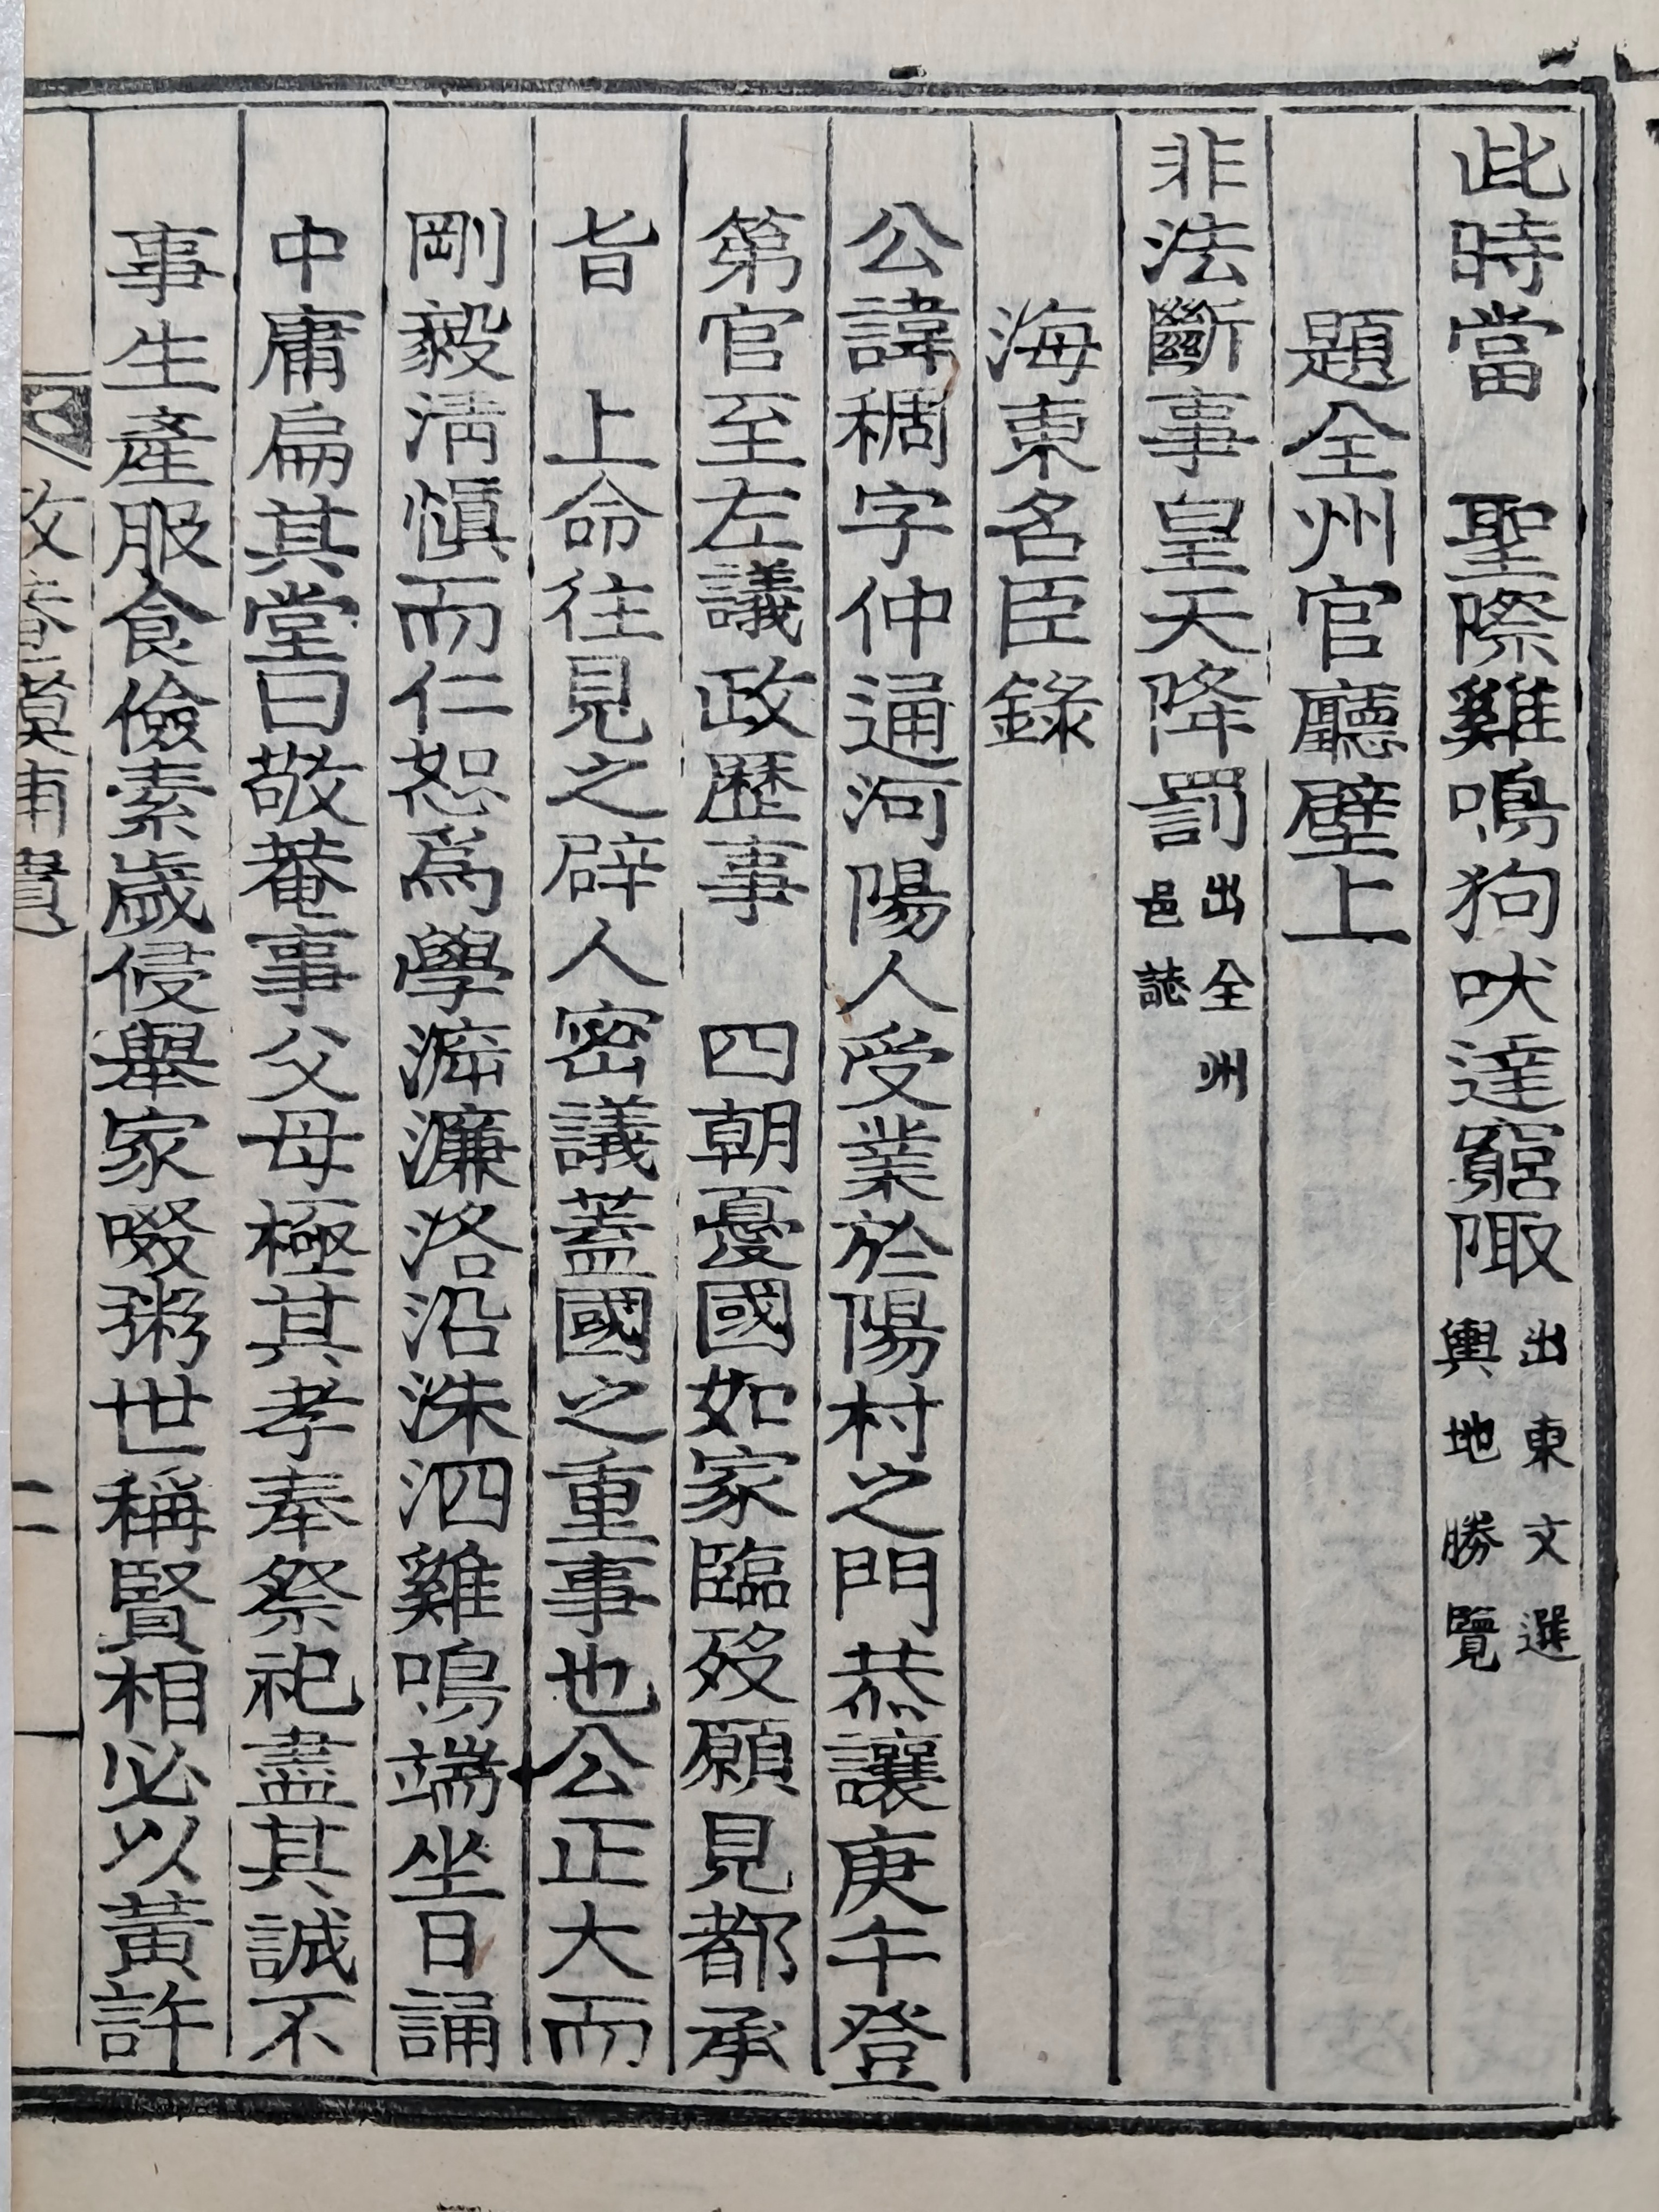 此時當　聖際雞鳴狗吠達窮陬出東文選輿地勝覽
題全州官廳壁上
非法斷事皇天降罰出全州邑誌
海東名臣錄
公諱稠字仲通河陽人受業於陽村之門恭讓庚午登
第官至左議政歷事　四朝憂國如家臨歿願見都承
旨　上命往見之辟人密議蓋國之重事也公正大而
剛毅淸愼而仁恕爲學溯濂洛沿洙泗雞鳴端坐日誦
中庸扁其堂曰敬菴事父母極其孝奉祭祀盡其誠不
事生產服食儉素歲侵擧家啜粥世稱賢相必以黃許
二